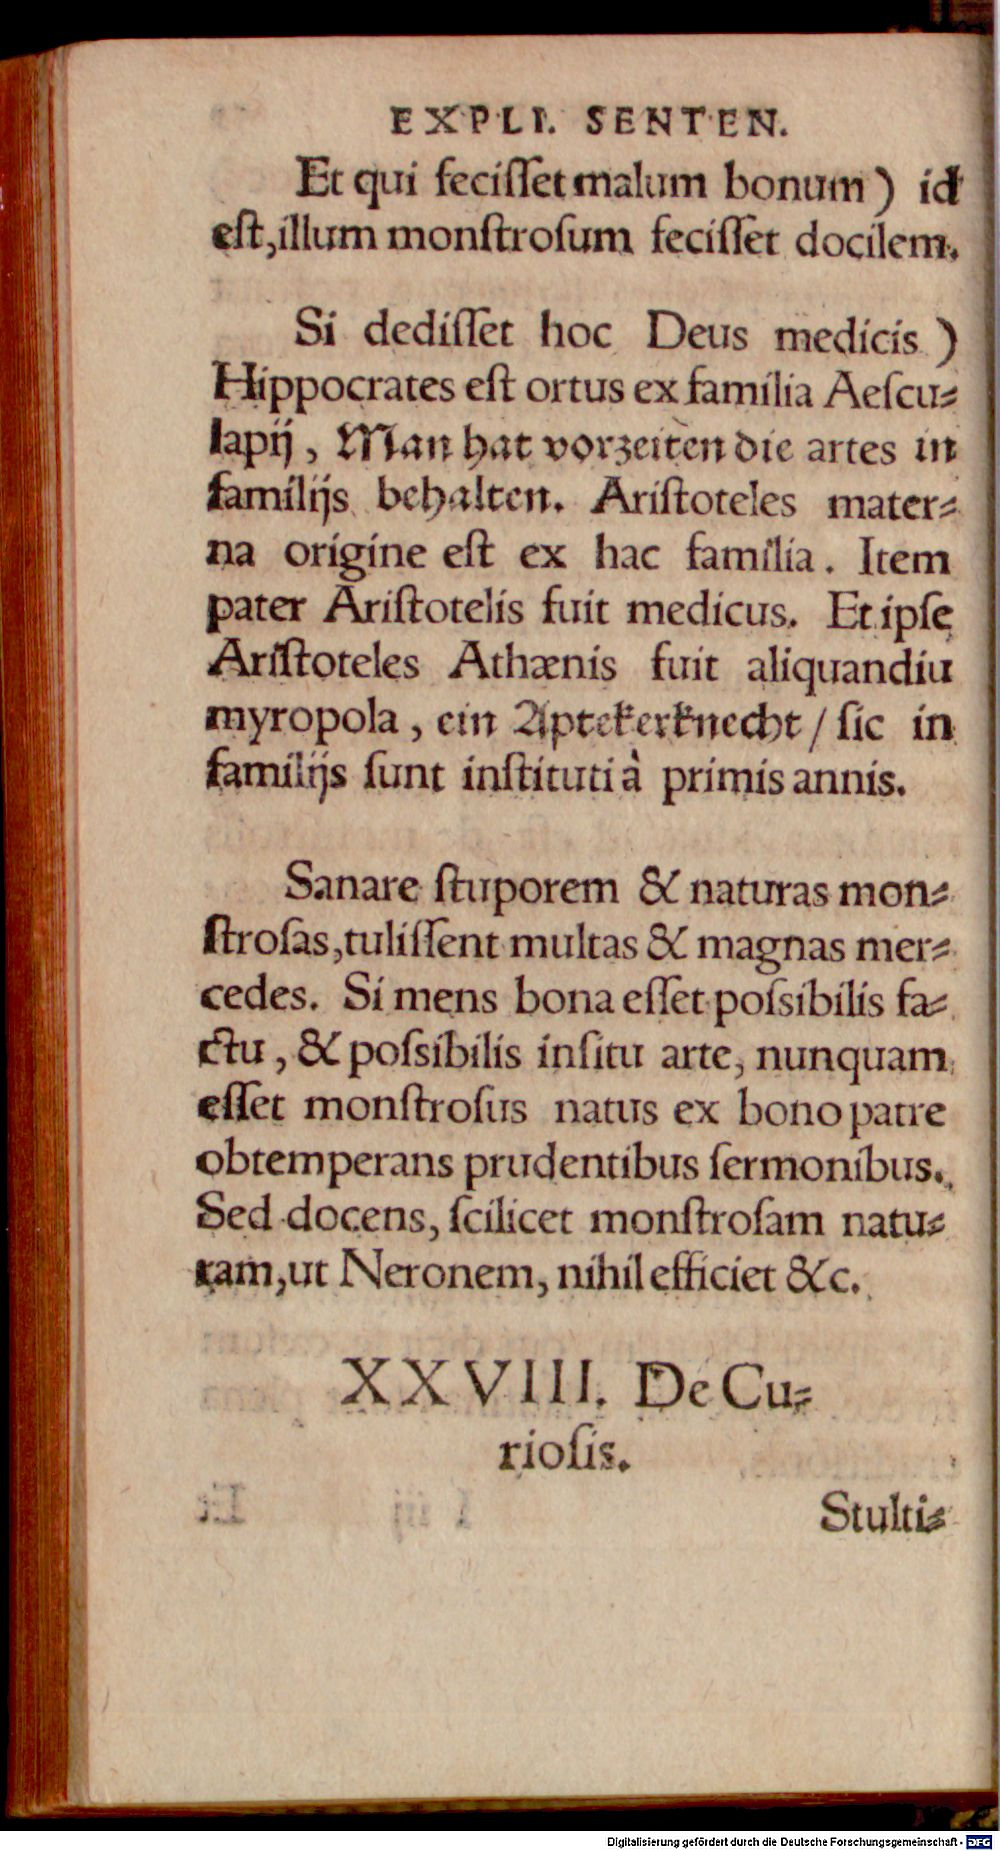 EXPLI. SENTEN.
Et qui feciſſet malum bonum) id
eſt, illum monſtroſum feciſſet docilem.
Si dediſſet hoc Deus medicis)
Hippocrates eſt ortus ex familia Aeſcu⸗
lapij, Man hat vorzeiten die artes in
familijs behalten. Ariſtoteles mater⸗
na origine eſt ex hac familia. Item
pater Ariſtotelis fuit medicus. Et ipſe
Ariſtoteles Athænis fuit aliquandiu
myropola, ein Aptekerknecht / ſic in
familijs ſunt inſtituti à primis annis.
Sanare ſtuporem & naturas mon⸗
ſtroſas, tuliſſent multas & magnas mer⸗
cedes. Si mens bona eſſet poſsibilis fa⸗
ctu, & poſsibilis inſitu arte, nunquam
eſſet monſtroſus natus ex bono patre
obtemperans prudentibus ſermonibus.
Sed docens, ſcilicet monſtroſam natu⸗
ram, ut Neronem, nihil efficiet &c.
XXVIII. De Cu⸗
rioſis.
Stulti⸗
Digitalisierung gefördert durch die Deutsche Forschungsgemeinschaft - DFG